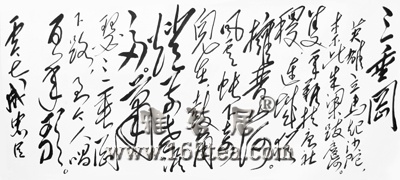 三垂冈
英雄立马起沙陀
奈此朱梁跋扈何
隻手难扶唐社
稷连城
拥晋山河
风云帐下
儿在鼓角
灯前老泪
多萧
瑟三垂冈
下路至今人唱
百年歌